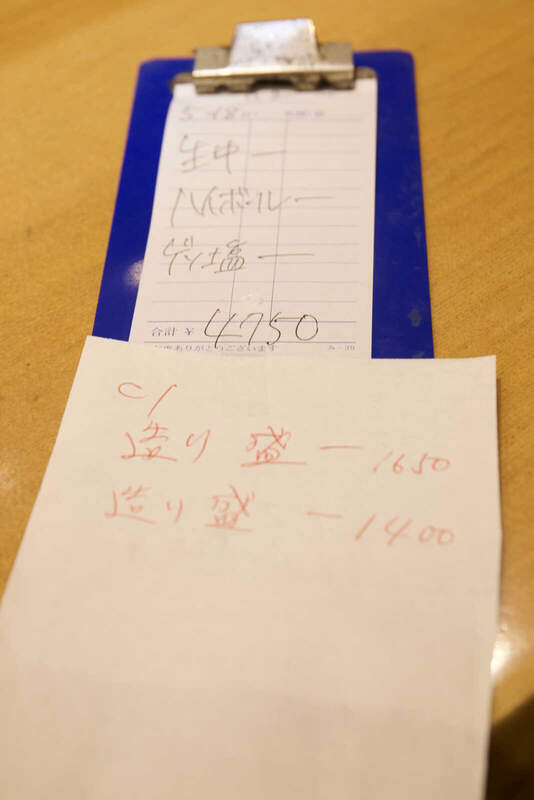 生中 一
ハイボール 一
ゲソ塩 一
合計 ¥ 4750
ありがとうございます
C/
造り 盛 一 1650
造り 盛 一 1400